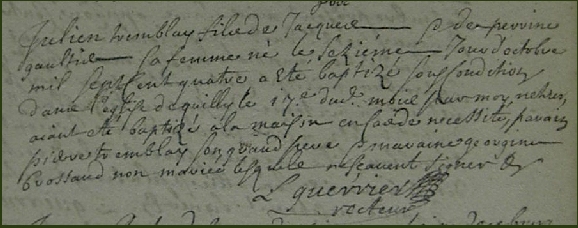 Julien tremblay fils de Jacque et de perrine
gaultier sa femme né le sezième Jour d'octobre
mil sept cent quatre a été baptizé sous condition
dans l'eglise de quilly le 17e dud. mois par moy recteur
aiant été baptizé a la maison en cas de necessité, parain
pierre tremblay son grand pere maraine georgine
brossaud non mariée lesquels ne scavent signer
L guerrier
recteur